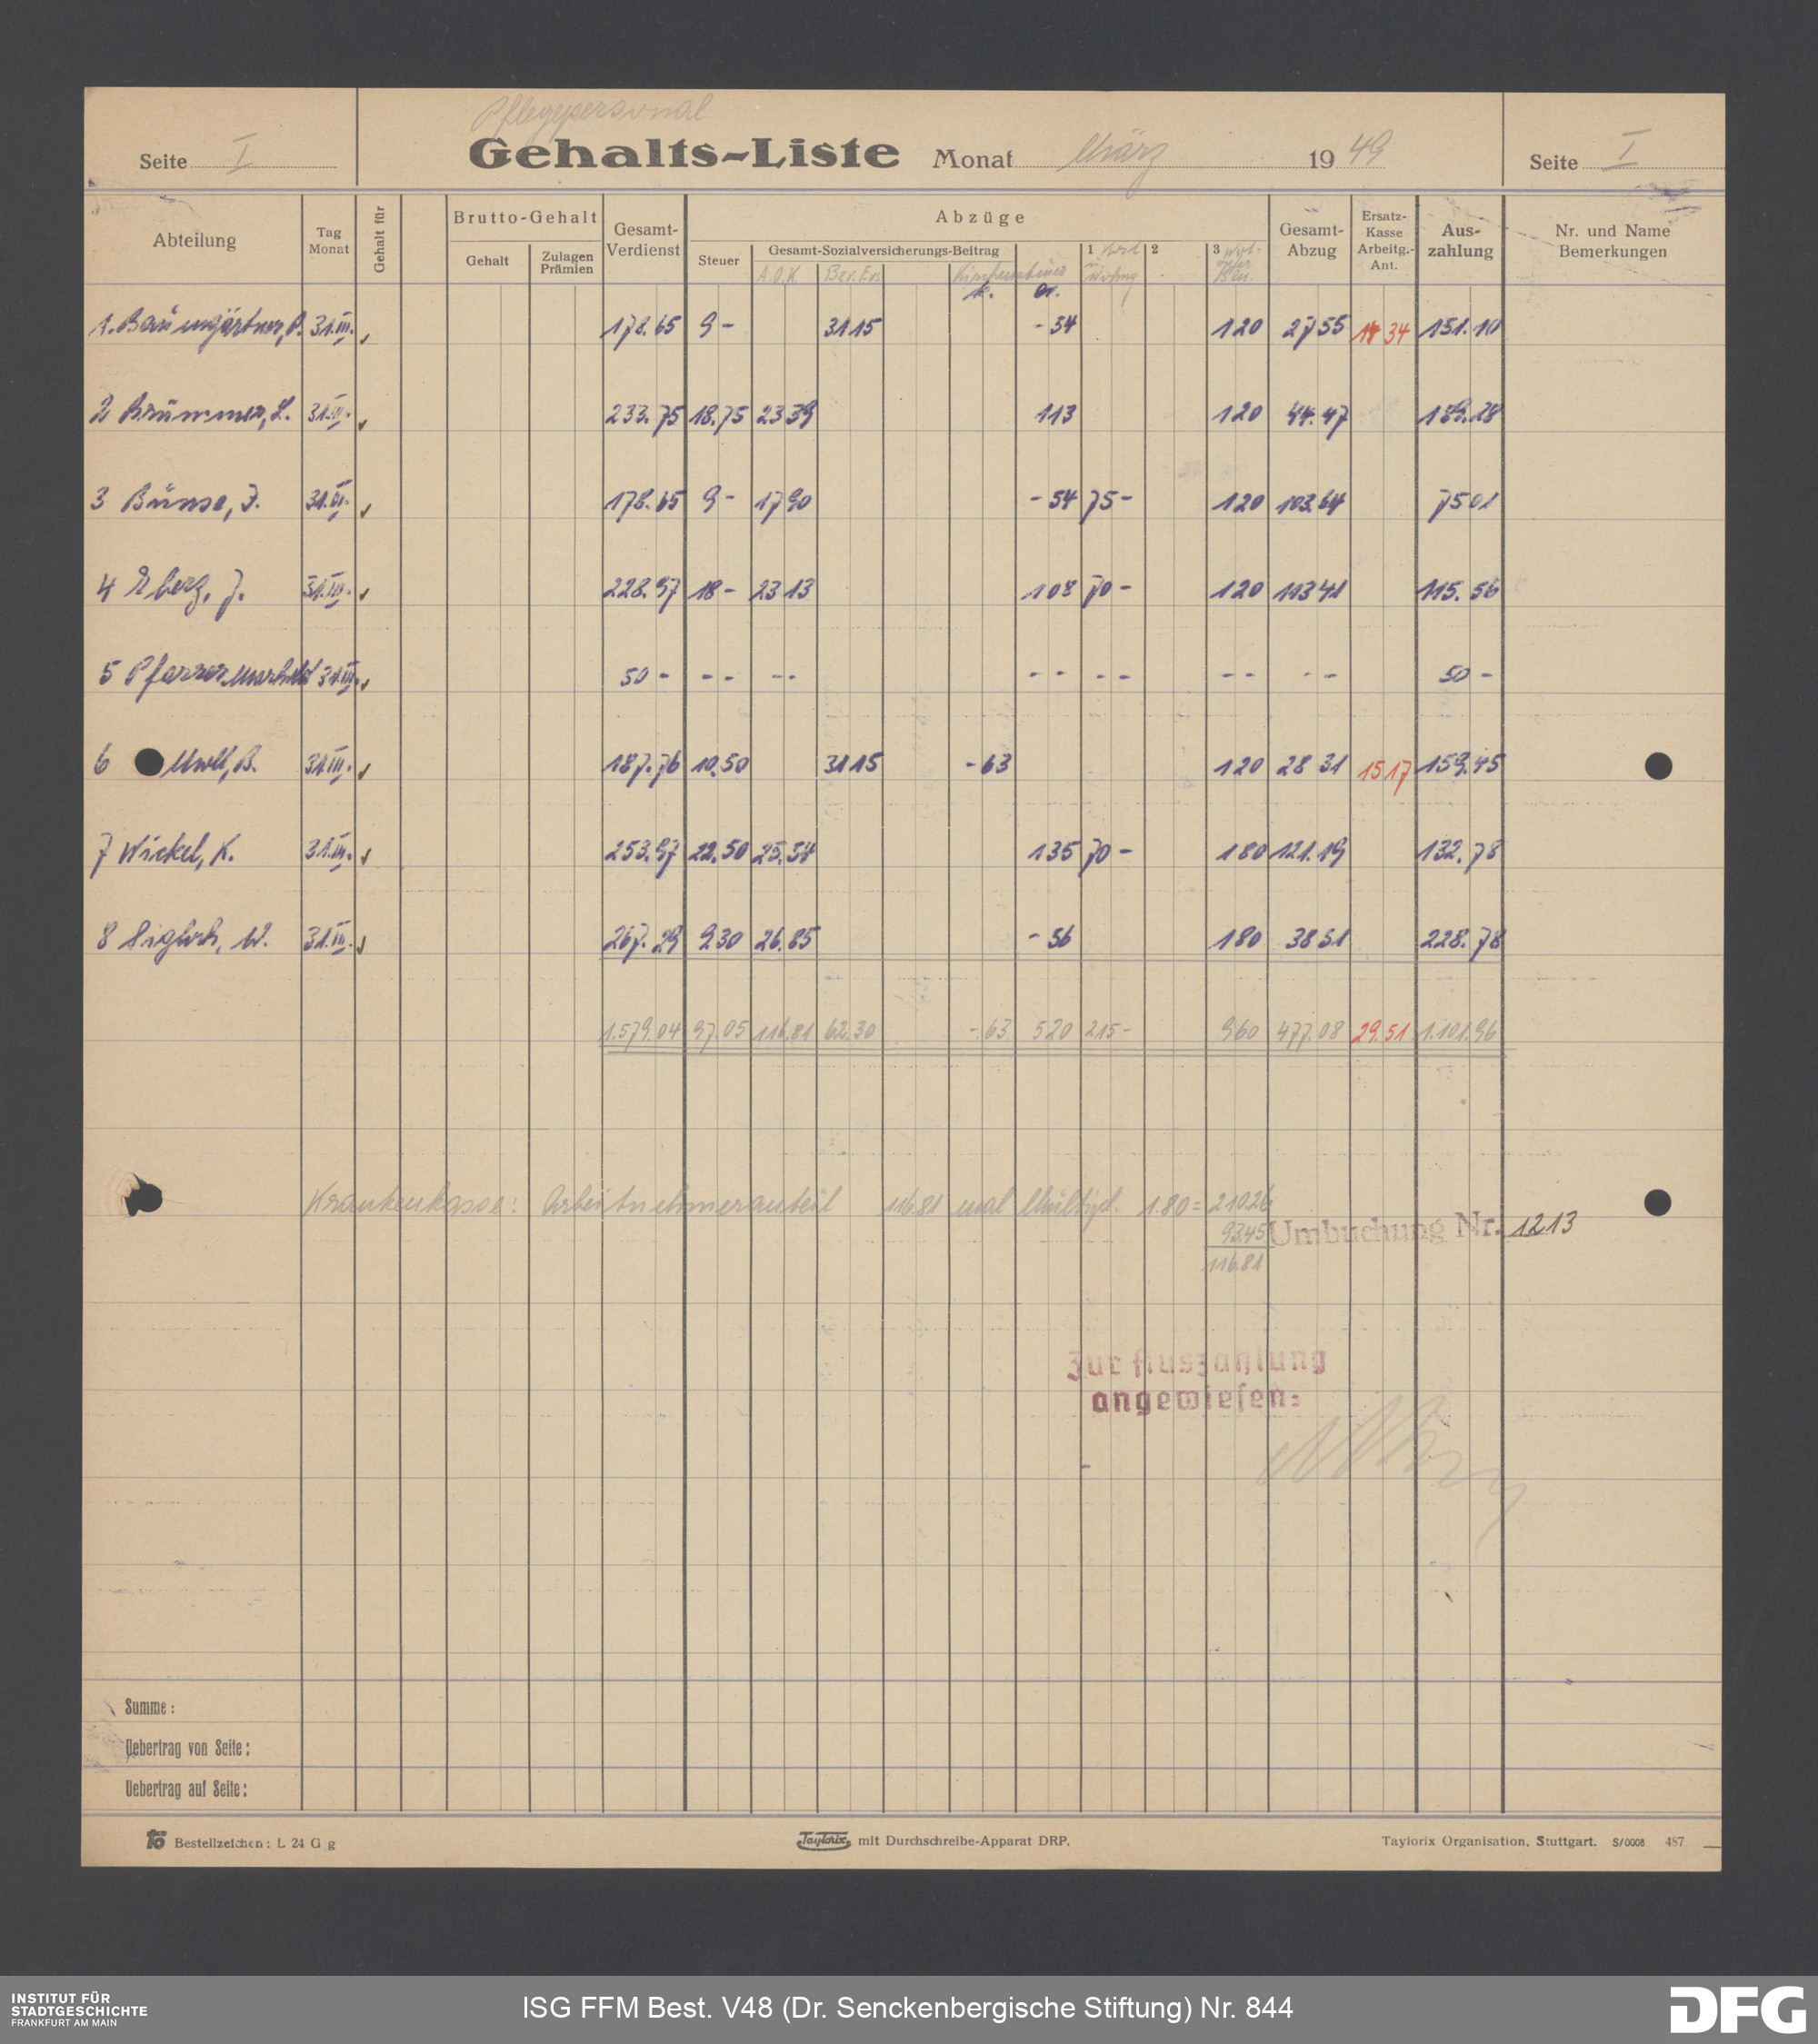 Pflegepersonal
Seite I Gehalts-Liste Monat März 1949 Seite I
Abteilung Tag Monat Gehalt für Brutto-Gehalt Gehalt Zulagen Prämien Gesamt-Verdienst Abzüge Steuer Gesamt-Sozialversicherungs-Beitrag A.O.K. Kirchensteuer k. ev. 1 2 3 Gesamt-Abzug Ersatz-Kasse Arbeitg.-Ant. Aus-zahlung Nr. und Name Bemerkungen
1. Baumgärtner, P. 31.III. 178.65 9 - 31 15 - 54 1 20 27 55 14 34 151.10
2 Brümmer, L. 31.III. 233.75 18.75 23 39 1 13 1 20 44.47 189.28
3 Bünse, J. 31.III. 178.65 9 - 17 90 - 54 75 - 1 20 103.64 75 01
4 Eberz, J. 31.III. 228.97 18 - 23 13 1 08 70 - 1 20 113 41 115.56
5 Pfarrer 31.III. 50 - - - - - - - - - - - - - 50 -
6 31.III. 187.76 10.50 31 15 - 63 1 20 28 31 15 17 159.45
7 Wickel, K. 31.III. 253.97 22.50 25.54 1 35 70 - 1 80 121.19 132.78
8 Sigloch, W. 31.III. 267.29 9.30 26.85 - 56 1 80 38 51 228.78
1.579.04 97.05 116.81 62.30 -.63 5 20 215 - 9 60 477.08 29.51 1.101.96
Krankenkasse: Arbeitnehmeranteil 116.81 mal Multipl. 1.80 = 210.26
93.45 Umbuchung Nr. 1213
116.81
Zur Auszahlung
angewiesen:
Summe:
Uebertrag von Seite:
Uebertrag auf Seite:
Bestellzeichen: L 24 G g Taylorix mit Durchschreibe-Apparat DRP. Taylorix Organisation, Stuttgart. S/0008 487
INSTITUT FÜR
STADTGESCHICHTE
FRANKFURT AM MAIN
ISG FFM Best. V48 (Dr. Senckenbergische Stiftung) Nr. 844
DFG